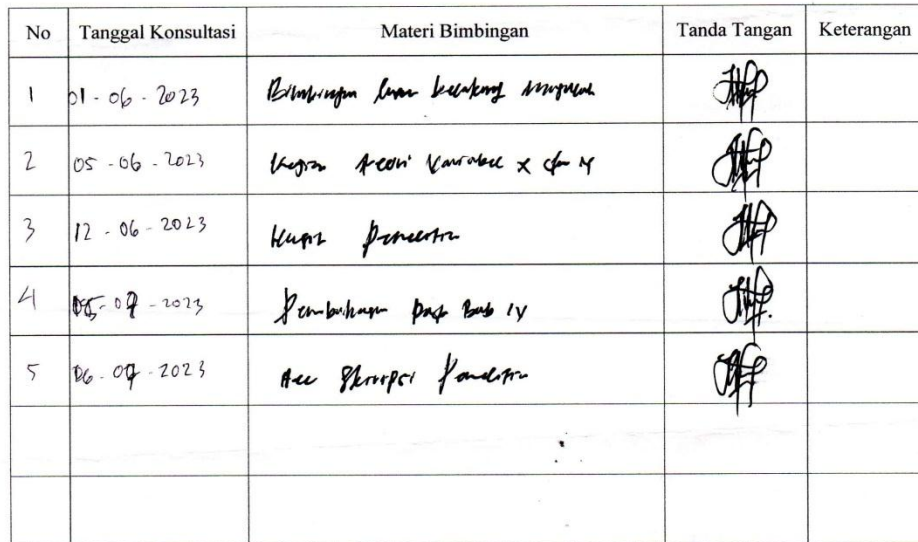 No Tanggal Konsultasi Materi Bimbingan Tanda Tangan Keterangan
1 01 - 06 - 2023 Bimbingan latar belakang masalah
2 05 - 06 - 2023 Kajian teori Variabel x dan y
3 12 - 06 - 2023
4 - 2023 Pembahasan pada Bab IV
5 06 - 07 - 2023 Acc Skripsi Penelitian